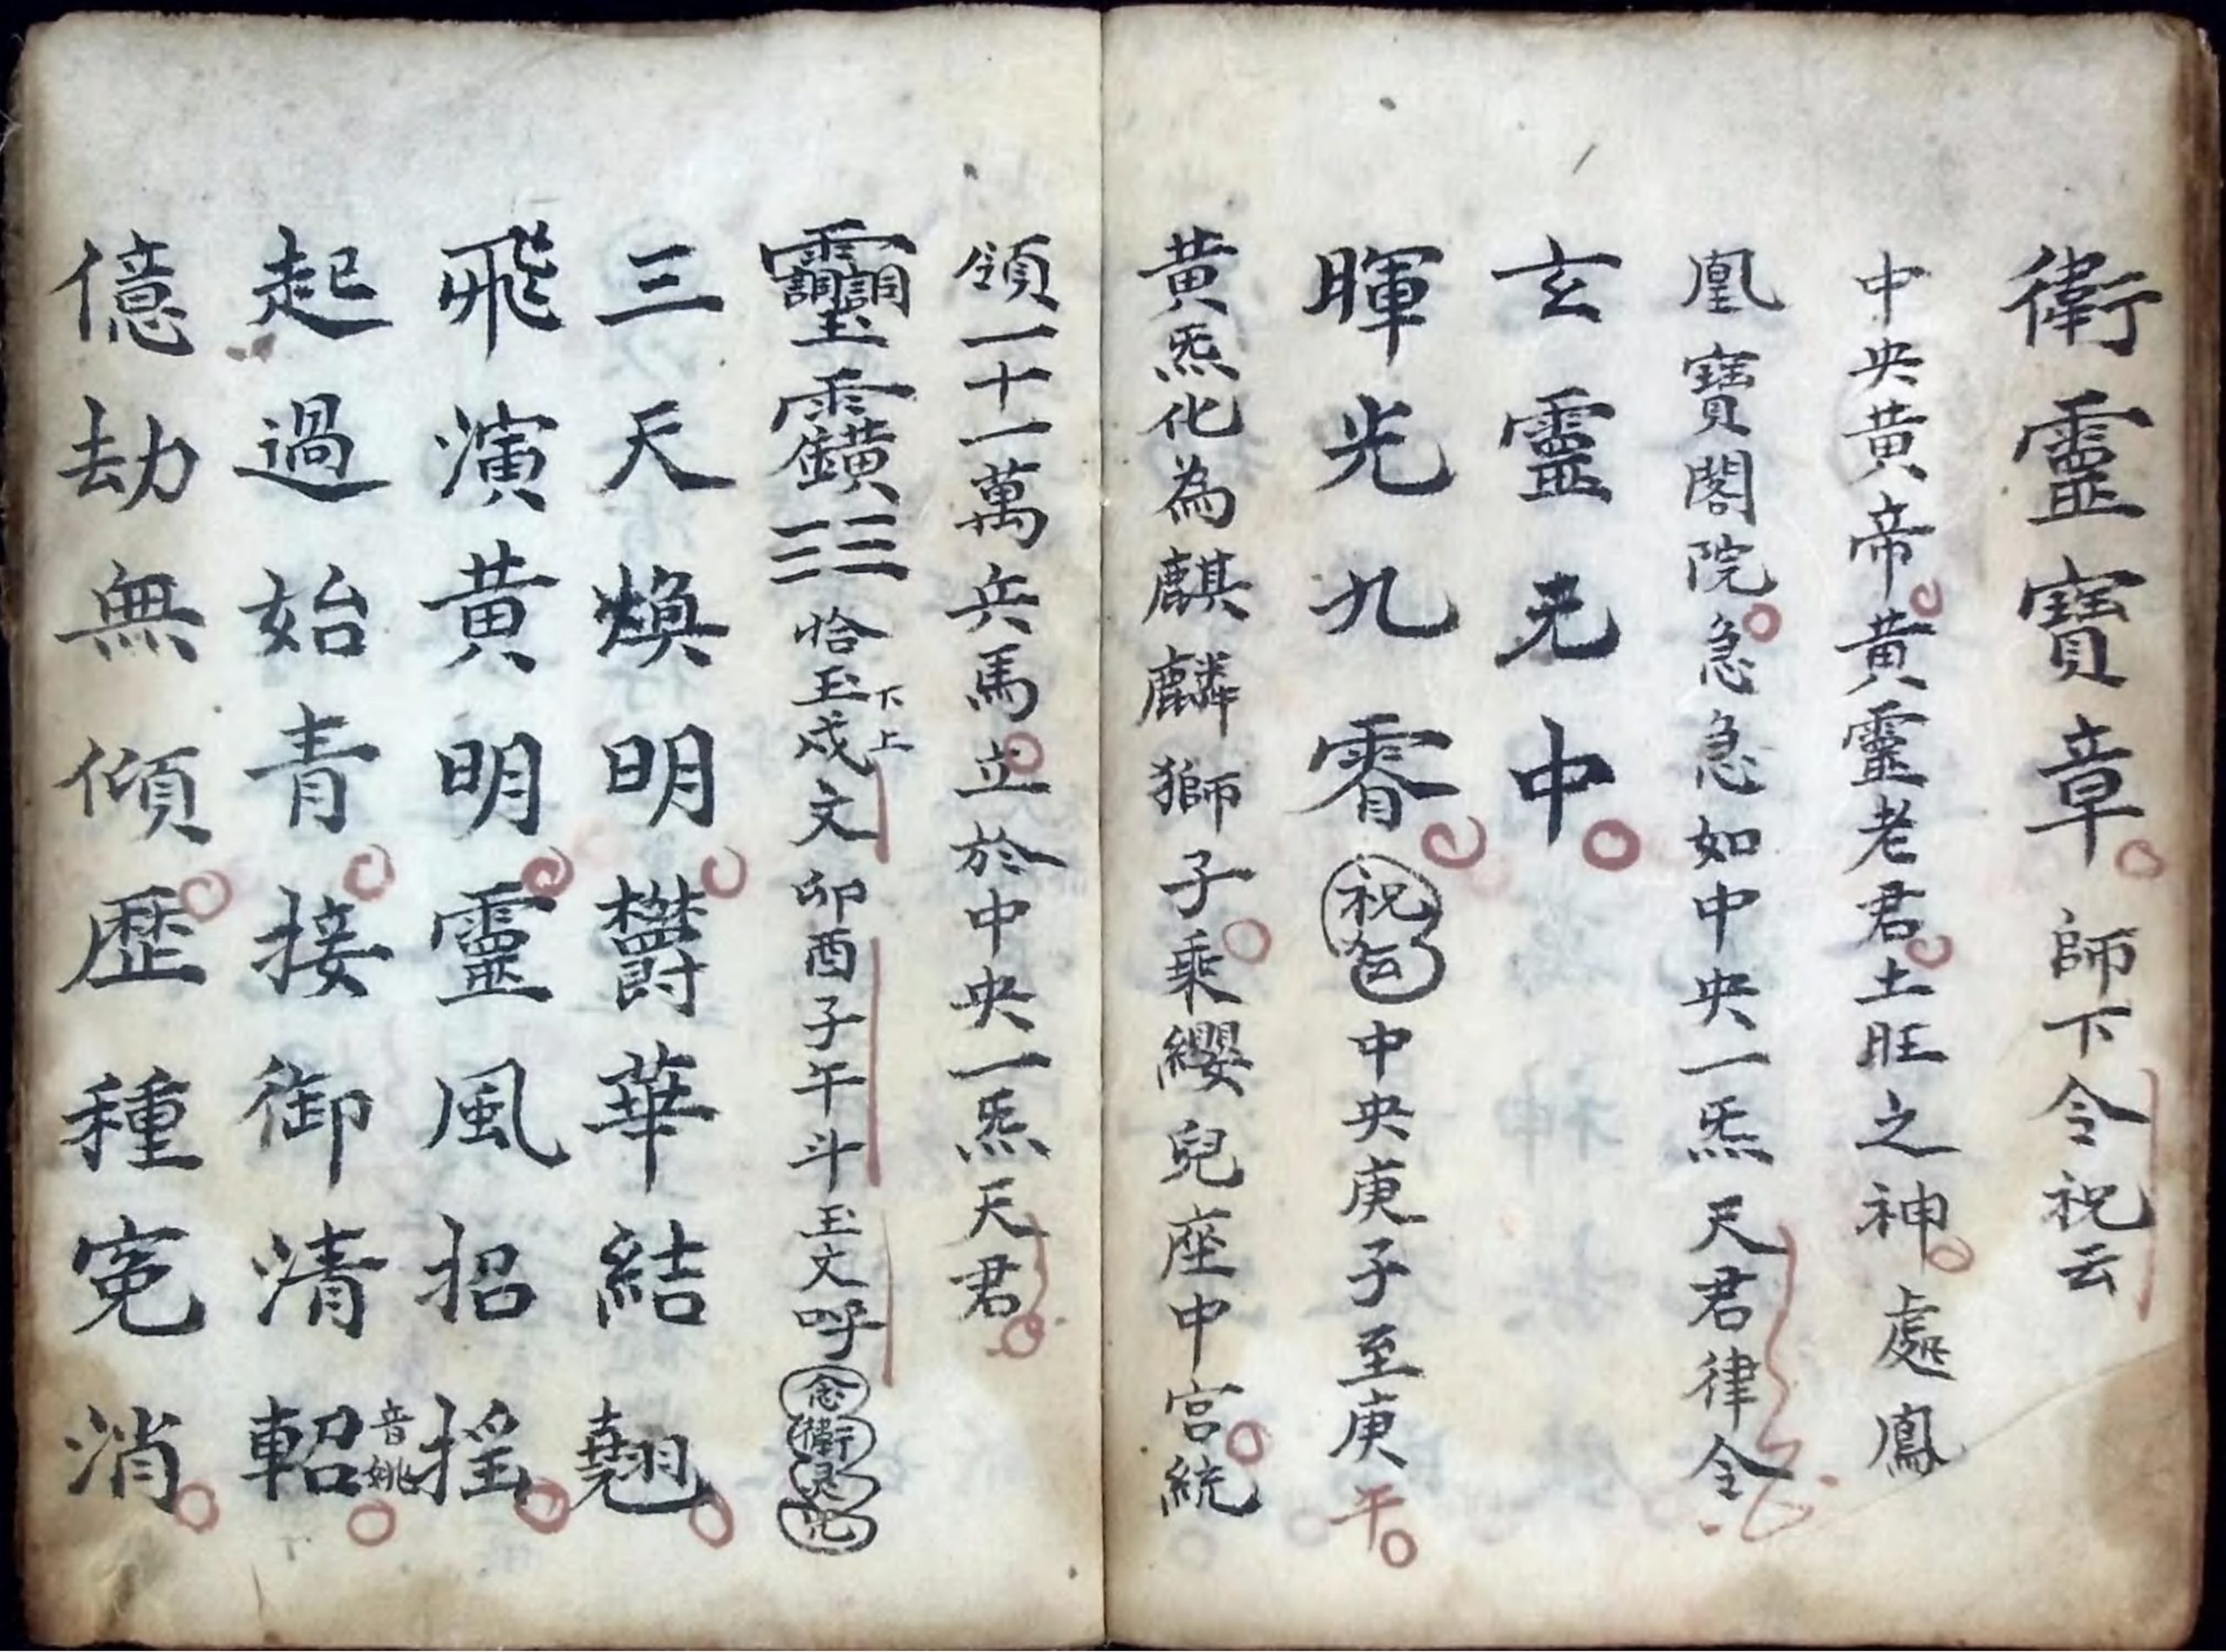 衛靈寶章師下令祝云
中央黄帝黄靈老君土旺之神處鳳
凰寶閣院急急如中央一炁天君律令
玄靈元中
暉光九霄祝云中央庚子至庚午
黄炁化為麒麟獅子乘纓兒座中宮統
領一十一萬兵馬立於中央一炁天君
恰玉戍文卯酉子午斗玉文呼念衛灵咒
下上
三天煥明欝華結翹
飛演黄明靈風招搖
起過始青接御清軺
音姚
億劫無傾歷種寃消